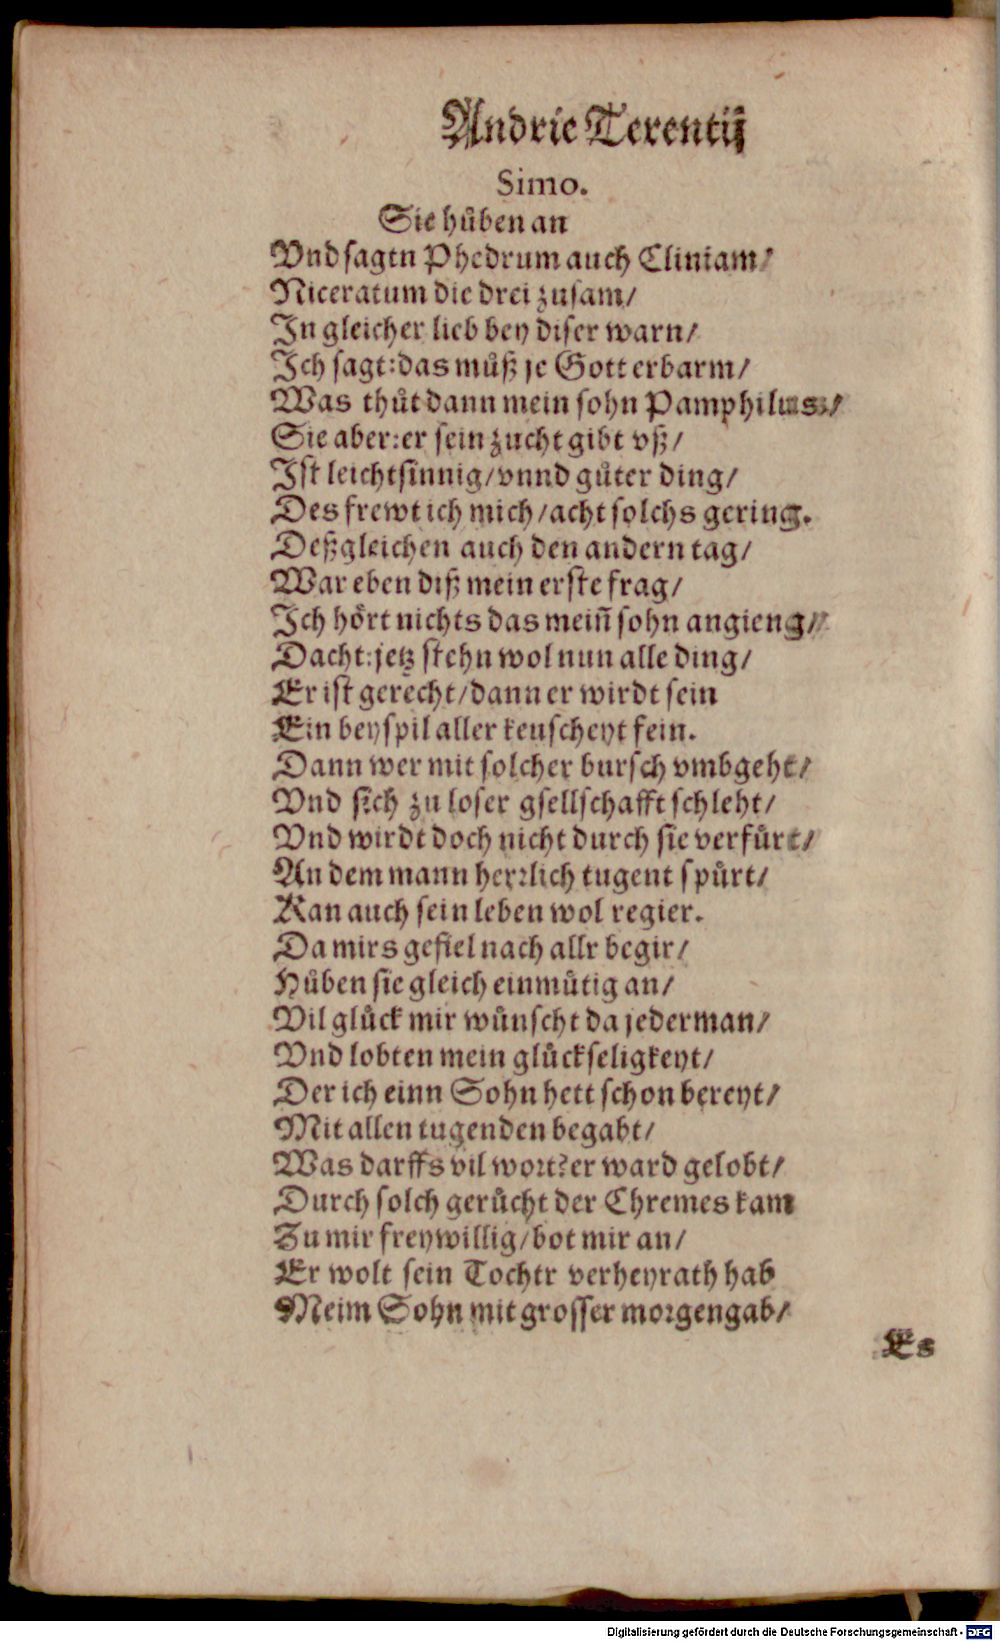 Andrie Terentij
Simo.
Sie huͦben an
Vnd sagtn Phedrum auch Cliniam/
Niceratum die drei zusam/
In gleicher lieb bey diser warn/
Ich sagt: das muͦß je Gott erbarm/
Was thuͦt dann mein sohn Pamphilus/
Sie aber: er sein zucht gibt vß/
Ist leichtsinnig/ vnnd guͦter ding/
Des frewt ich mich/ acht solchs gering.
Deßgleichen auch den andern tag/
War eben diß mein erste frag/
Ich hoͤrt nichts das meiñ sohn angieng/
Dacht: jetz stehn wol nun alle ding/
Er ist gerecht/ dann er wirdt sein
Ein beyspil aller keuscheyt fein.
Dann wer mit solcher bursch vmbgeht/
Vnd sich zu loser gsellschafft schleht/
Vnd wirdt doch nicht durch sie verfuͤrt/
An dem mann herrlich tugent spuͤrt/
Kan auch sein leben wol regier.
Da mirs gefiel nach allr begir/
Huͦben sie gleich einmuͤtig an/
Vil gluͤck mir wuͤnscht da jederman/
Vnd lobten mein gluͤckseligkeyt/
Der ich einn Sohn hett schon bereyt/
Mit allen tugenden begabt/
Was darffs vil wort? er ward gelobt/
Durch solch geruͤcht der Chremes kam
Zu mir freywillig/ bot mir an/
Er wolt sein Tochtr verheyrath hab
Meim Sohn mit grosser morgengab/
Es
Digitalisierung gefördert durch die Deutsche Forschungsgemeinschaft - DFG